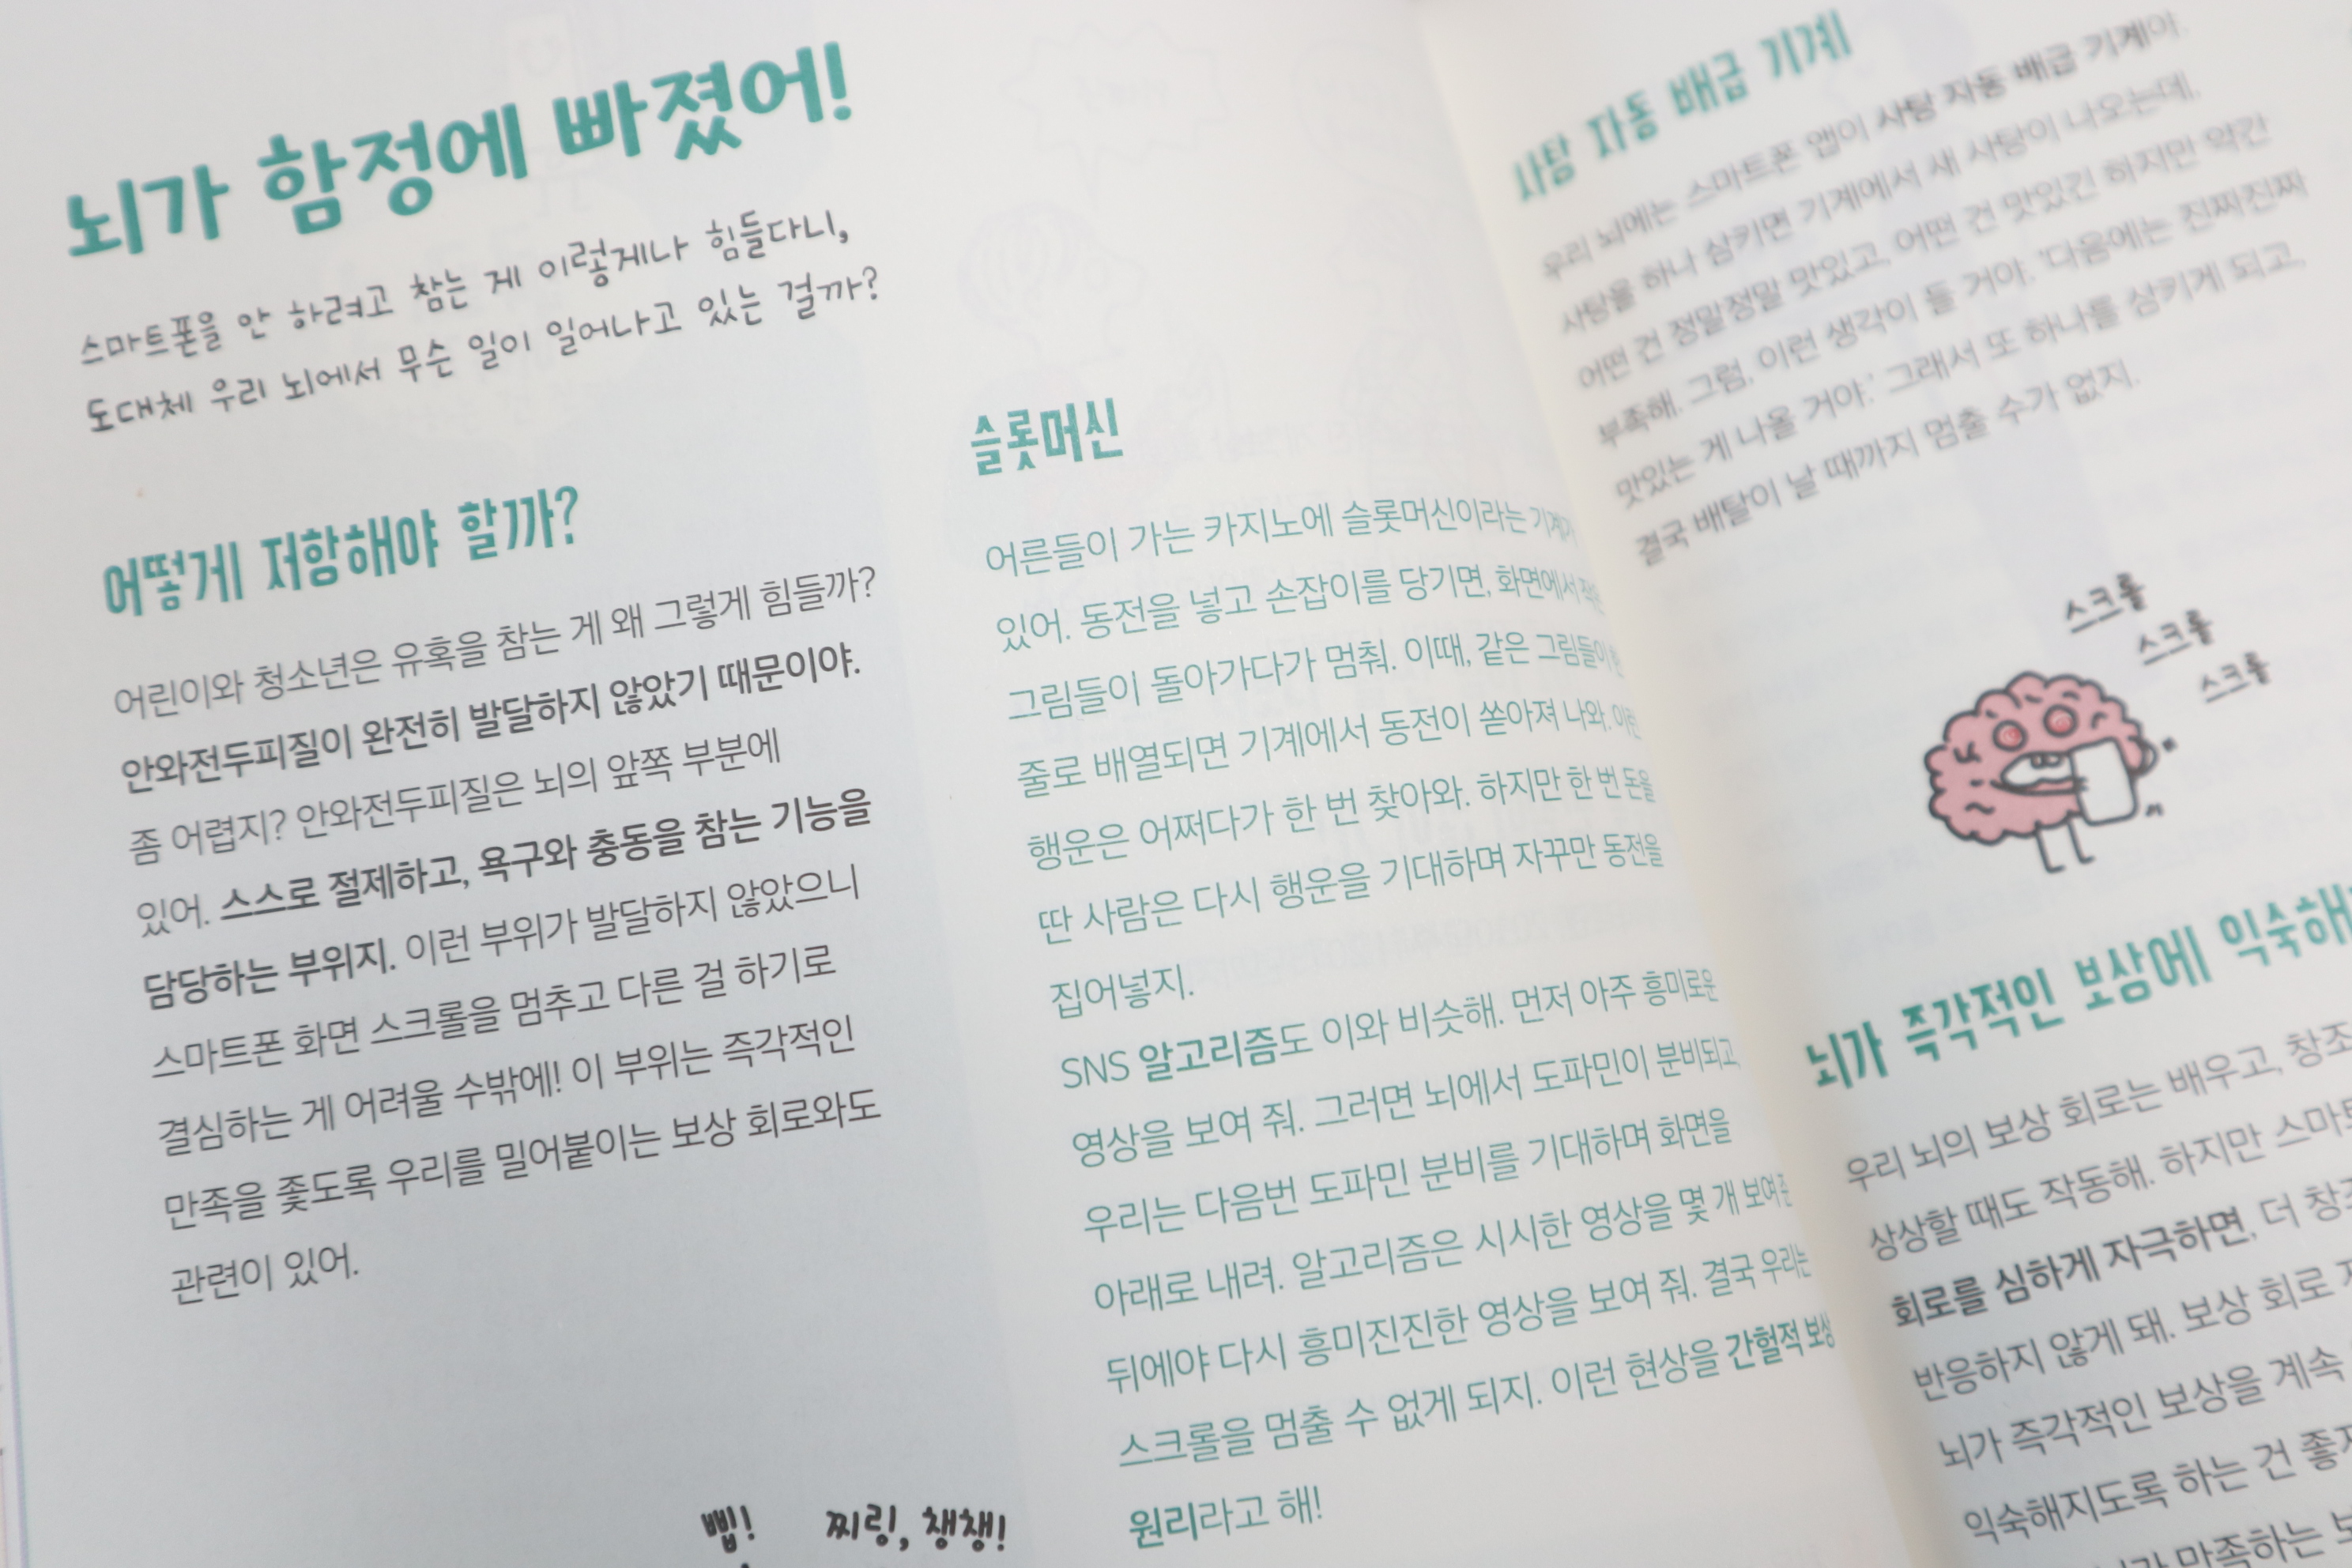 뇌가 함정에 빠졌어!
스마트폰을 안 하려고 참는 게 이렇게나 힘들다니,
도대체 우리 뇌에서 무슨 일이 일어나고 있는 걸까?
어떻게 저항해야 할까?
어린이와 청소년은 유혹을 참는 게 왜 그렇게 힘들까?
안와전두피질이 완전히 발달하지 않았기 때문이야.
좀 어렵지? 안와전두피질은 뇌의 앞쪽 부분에
있어. 스스로 절제하고, 욕구와 충동을 참는 기능을
담당하는 부위지. 이런 부위가 발달하지 않았으니
스마트폰 화면 스크롤을 멈추고 다른 걸 하기로
결심하는 게 어려울 수밖에! 이 부위는 즉각적인
만족을 좇도록 우리를 밀어붙이는 보상 회로와도
관련이 있어.
삡! 찌링, 챙챙!
슬롯머신
어른들이 가는 카지노에 슬롯머신이라는 기계가
있어. 동전을 넣고 손잡이를 당기면, 화면에서 작은
그림들이 돌아가다가 멈춰. 이때, 같은 그림들이 한
줄로 배열되면 기계에서 동전이 쏟아져 나와. 이런
행운은 어쩌다가 한 번 찾아와. 하지만 한 번 돈을
딴 사람은 다시 행운을 기대하며 자꾸만 동전을
집어넣지.
SNS 알고리즘도 이와 비슷해. 먼저 아주 흥미로운
영상을 보여 줘. 그러면 뇌에서 도파민이 분비되고,
우리는 다음번 도파민 분비를 기대하며 화면을
아래로 내려. 알고리즘은 시시한 영상을 몇 개 보여 준
뒤에야 다시 흥미진진한 영상을 보여 줘. 결국 우리는
스크롤을 멈출 수 없게 되지. 이런 현상을 간헐적 보상
원리라고 해!
사탕 자동 배급 기계
우리 뇌에는 스마트폰 앱이 사탕 자동 배급 기계야.
사탕을 하나 삼키면 기계에서 새 사탕이 나오는데,
어떤 건 정말정말 맛있고, 어떤 건 맛있긴 하지만 약간
부족해. 그럼, 이런 생각이 들 거야. '다음에는 진짜진짜
맛있는 게 나올 거야.' 그래서 또 하나를 삼키게 되고,
결국 배탈이 날 때까지 멈출 수가 없지.
스크롤
스크롤
스크롤
뇌가 즉각적인 보상에 익숙해
우리 뇌의 보상 회로는 배우고, 창조
상상할 때도 작동해. 하지만 스마트
회로를 심하게 자극하면, 더 창조
반응하지 않게 돼. 보상 회로
뇌가 즉각적인 보상을 계속
익숙해지도록 하는 건 좋지
만족하는